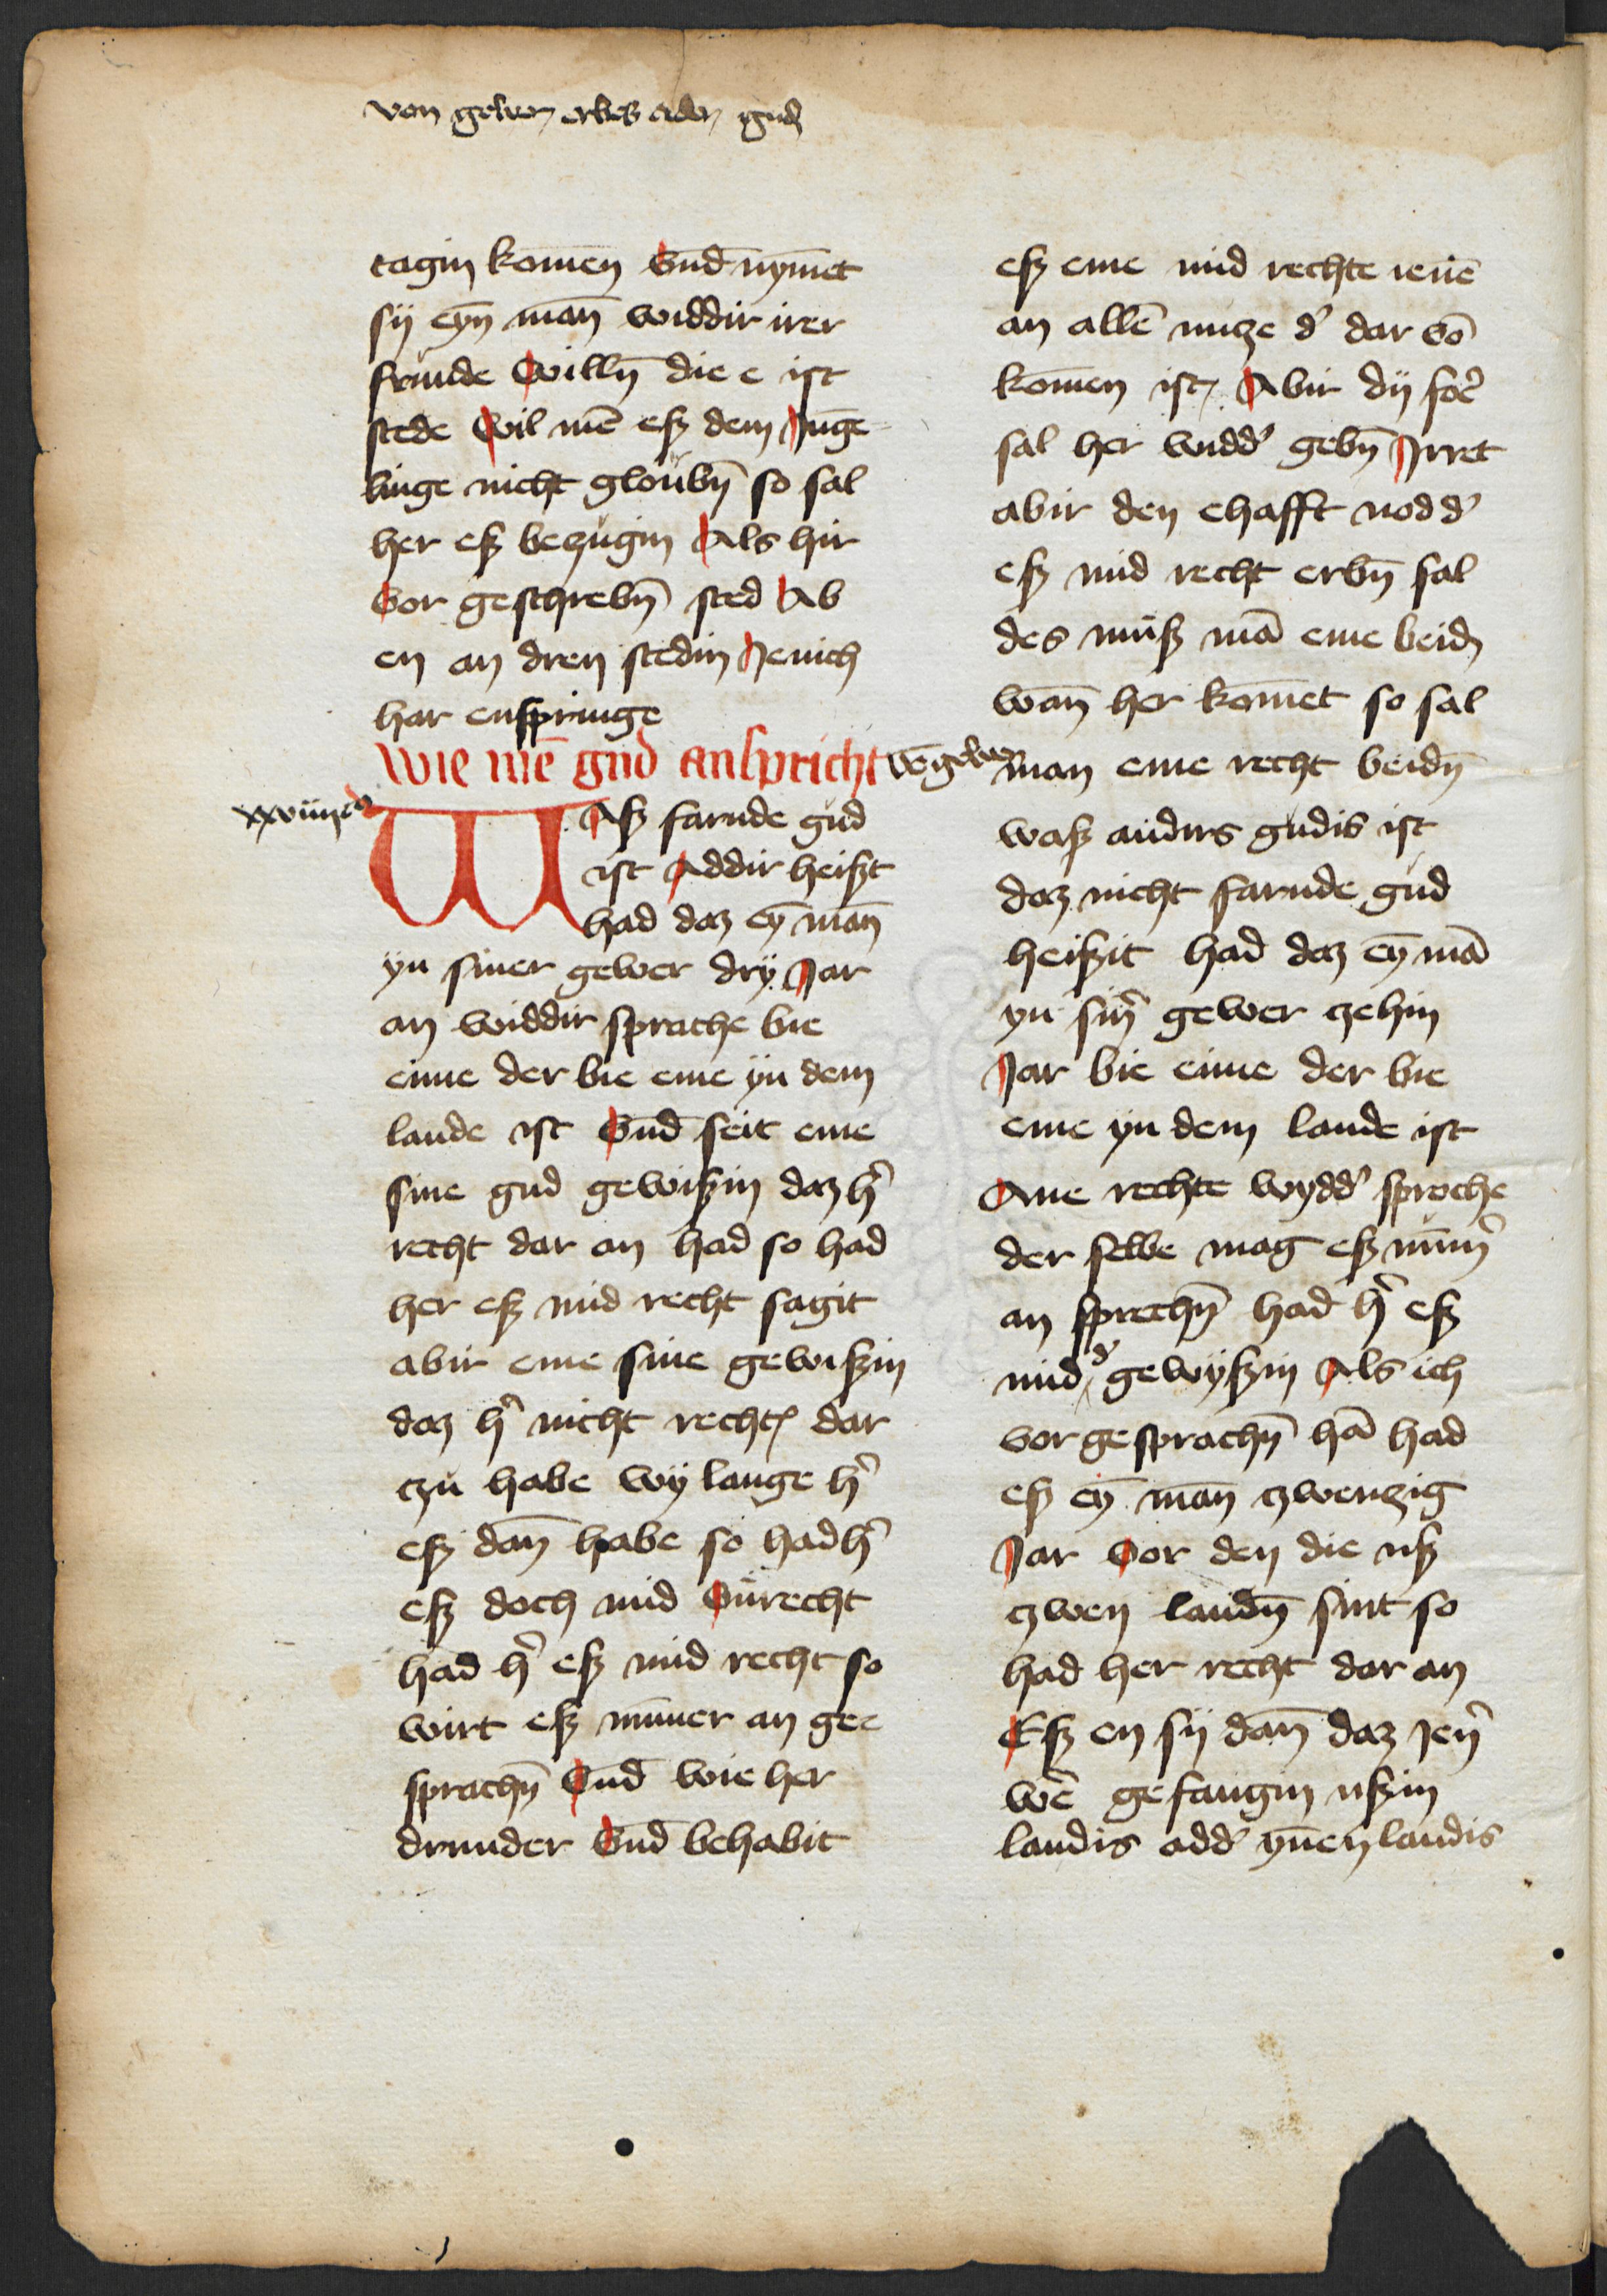 von gewer erbes ader gud
tagin komen Vnd nymet
sij eyn man widdir irer
frunde Willn die e ist
stede Wil me eß dem Junge
linge nicht gloubn so sal
her eß bezugin Als hir
Vor geschrebn sted Ab
en an dren stedin Jenich
har enspringe
Wie me gud anspricht vo gewer
xxviiij c
WAß farnde gud
ist Addir heißt
had daz ey man
yn siner gewer dry Jar
an widdir sprache bie
eime der bie eme yn dem
lande ist Vnd seit eme
sine gud gewißin daz h'
recht dar an had so had
her eß mid recht sagit
abir eme sine gewißin
daz h' nicht recht dar
czu habe wy lange h'
eß dan habe so had h'
eß doch mid Vnrecht
had h' eß mid recht so
wirt eß nūmer an ge
sprachn Vnd wie her
drunder Vnd behabit
eß eme mid rechte iene
an alle nucze d' dar vō
komen ist Abir dij
sal her widd' gebn Irret
abir den ehafft nod d'
eß mid recht erbn sal
des muß mā eme beidn
wan her komet so sal
man eme recht beidn
waß andirs gudis ist
daz nicht farnde gud
heißit had daz ey mā
yn sin' gewer czehin
Jar bie eime der bie
eme yn dem lande ist
Ane rechte wydd' sproche
der selbe mag eß nūm'
an sprechn had h' eß
mid d' gewyßin Als ich
vor gesprachn hā had
eß ey man czwenzig
Jar Vor den die uß
czwen landn sint so
had her recht dar an
Eß en sij dan daz Jen'
we' gefangin ußin
landis add' ynen landis